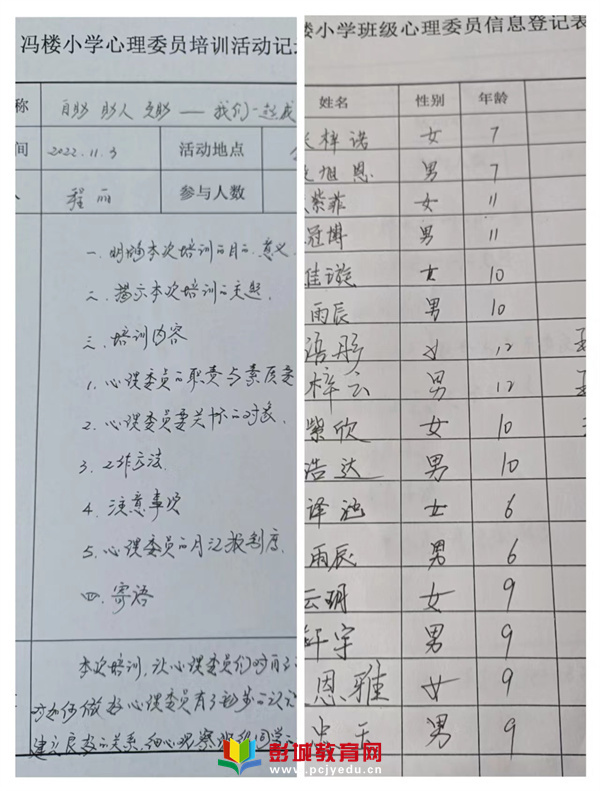 冯楼小学心理委员培训活动记
称 自助 助人 互助——我们一起成
间 2022.11.3 活动地点
人 程丽 参与人数
一. 明确本次培训的目的、意义
二. 揭示本次培训的主题.
三. 培训内容
1. 心理委员的职责与素质要
2. 心理委员要关怀的对象.
3. 工作方法.
4. 注意事项
5. 心理委员的月汇报制度.
四. 寄语
本次培训,让心理委员们对自己
对如何做好心理委员有了初步的认识
建立良好的关系,细心观察班级同学
楼小学班级心理委员信息登记表
姓名 性别 年龄
梓诺 女 7
旭恩 男 7
紫菲 女 11
冠博 男 11
佳璇 女 10
雨辰 男 10
语彤 女 12
梓云 男 12
紫欣 女 10
浩达 男 10
译 女 6
雨辰 男 6
云玥 女 9
轩宇 男 9
恩雅 女 9
天 男 9
彭城教育网
www.pcjyedu.cn